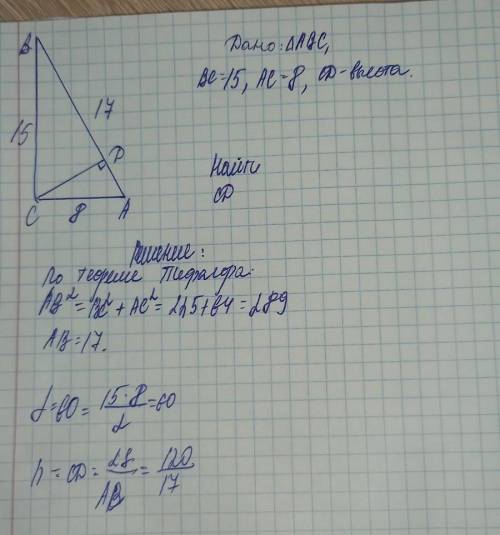 B
Дано: ΔABC,
BC=15, AC=8, CD-высота.
17
15
D
Найти
CD
C
8
A
Решение:
По теореме Пифагора:
AB² = BC² + AC² = 225+64 = 289
AB=17.
= 60 = 15·8/2 = 60
h = CD = 2S/AB = 120/17